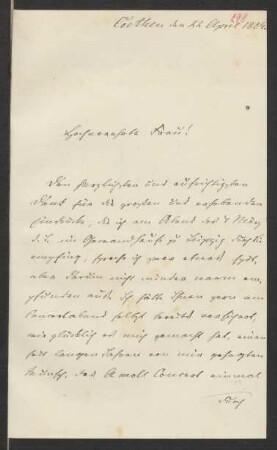 Cöthen den 22 April 1884.
Hochverehrte Frau!
Den herzlichsten und aufrichtigsten
Dank für die großen und erhebenden
Eindrücke, die ich am Abend des 7 März
d. J. im Gewandhause zu Leipzig durch Sie
empfing, spreche ich zwar etwas spät,
aber darum nicht minder warm em-
pfunden aus. Ich hätte Ihnen gern am
Concertabend selbst bereits versichert,
wie glücklich es mich gemacht hat, einen
seit langen Jahren von mir gehegten
Wunsch, das Amoll Concert einmal
durch